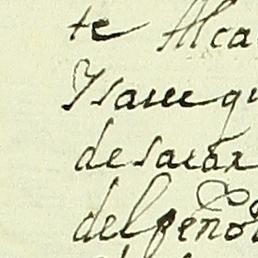 te Alca
Ysaue qu
de sacar
del señor